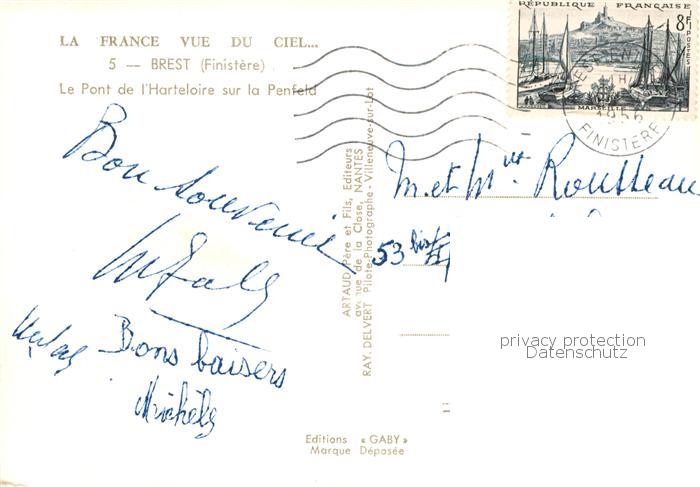 LA FRANCE VUE DU CIEL...
5 — BREST (Finistère)
Le Pont de l'Harteloire sur la Penfeld
RÉPUBLIQUE FRANÇAISE
8F
POSTES
MARSEILLE
1956
FINISTERE
Bon souvenir
Bons baisers
Michèle
M. et Mme Rousseau
53 bis
ARTAUD Père et Fils, Editeurs
avenue de la Close, NANTES
RAY. DELVERT Pilote-Photographe - Villeneuve-sur-Lot
privacy protection
Datenschutz
Editions « GABY »
Marque Déposée